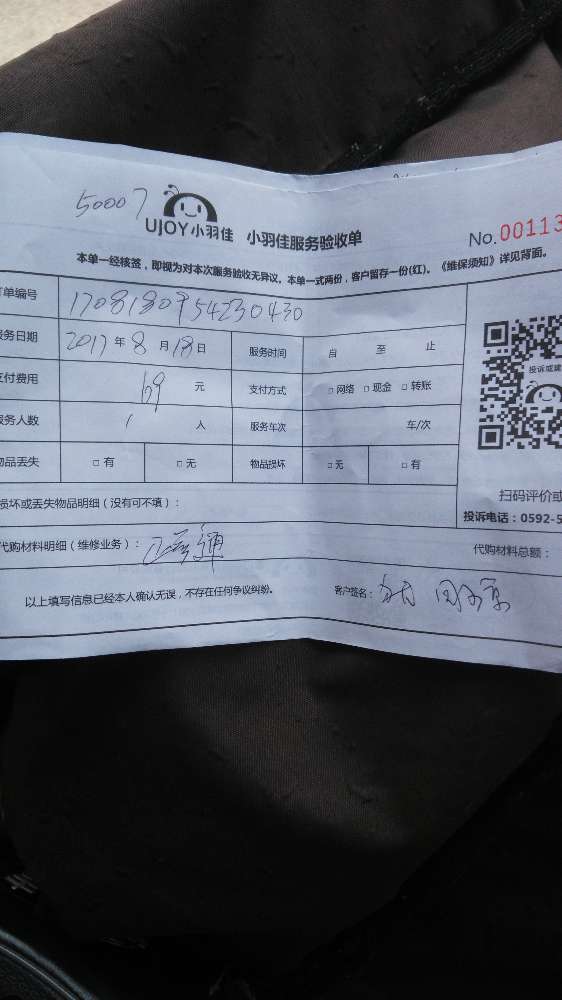 50007
UJOY小羽佳 小羽佳服务验收单
No.00113
本单一经核签，即视为对本次服务验收无异议。本单一式两份，客户留存一份(红)。《维保须知》详见背面。
订单编号 1708180954230430
服务日期 2017年8月18日 服务时间 自 至 止
支付费用 169 元 支付方式 □网络 □现金 □转账
服务人数 1 人 服务车次 车/次
物品丢失 □有 □无 物品损坏 □无 □有
投诉或建
扫码评价或
投诉电话：0592-5
损坏或丢失物品明细（没有可不填）：
代购材料明细（维修业务）：已疏通
代购材料总额：
以上填写信息已经本人确认无误，不存在任何争议纠纷。 客户签名：